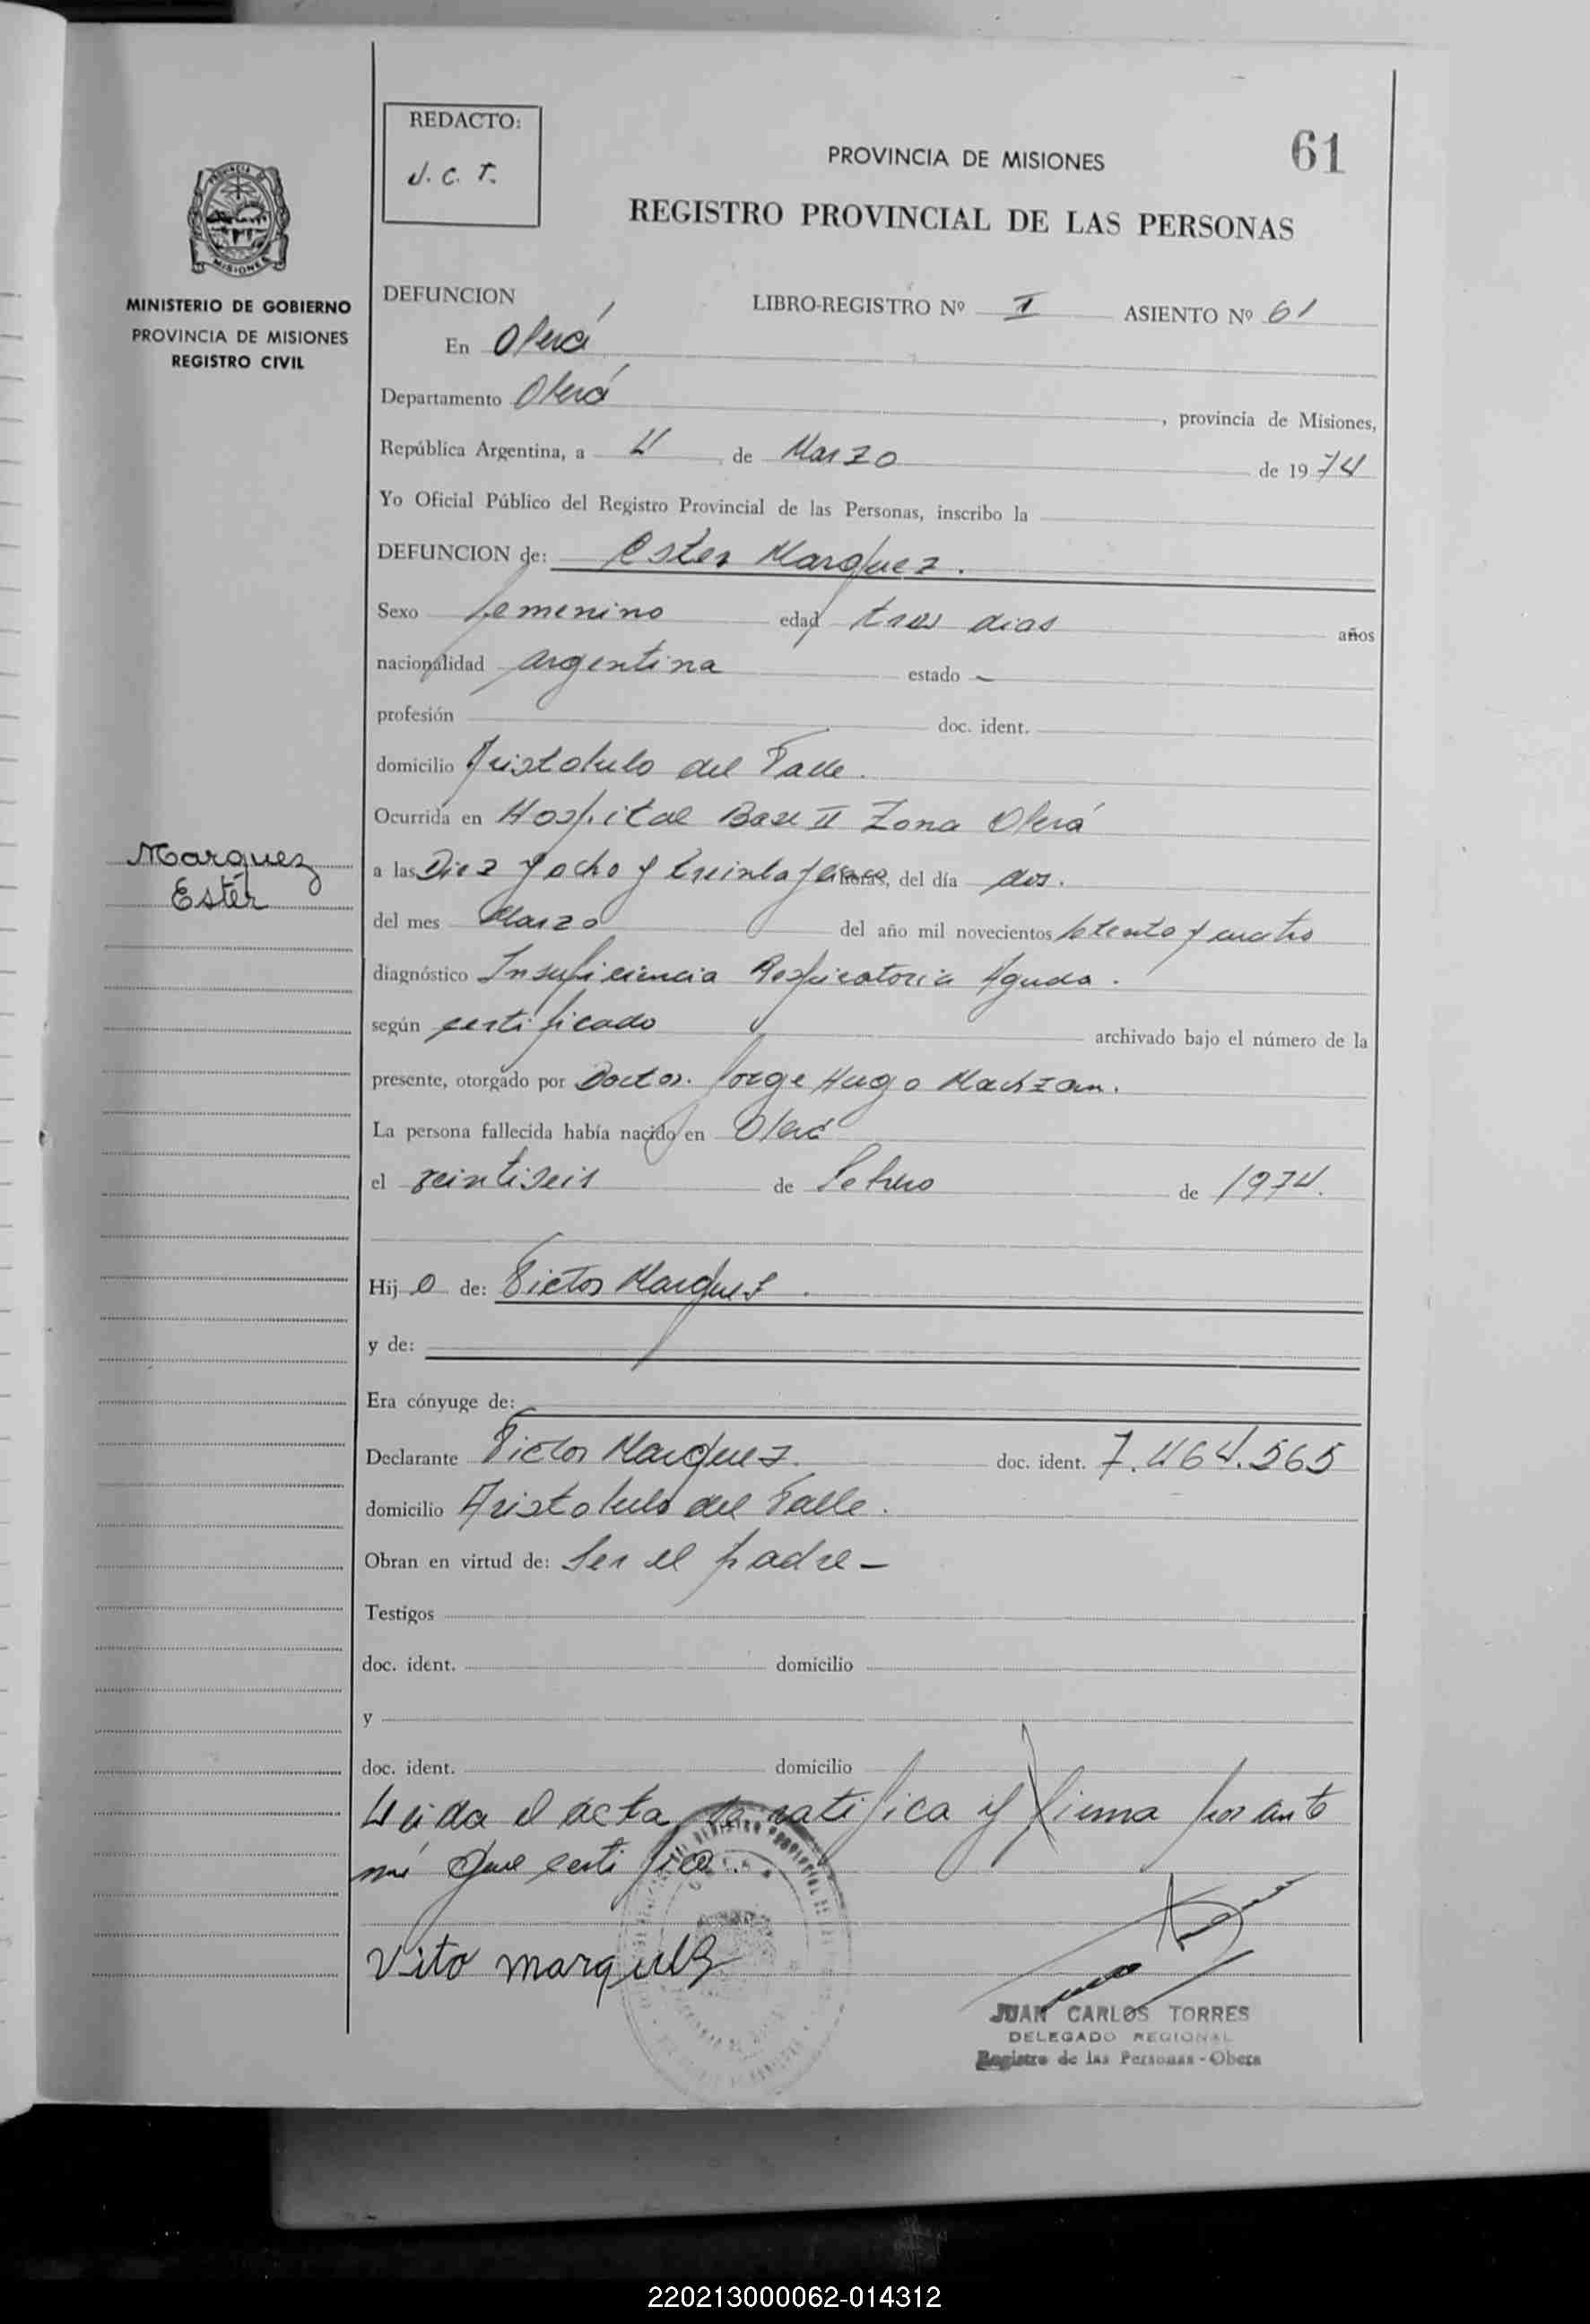 REDACTO:
J. C. T.
PROVINCIA DE MISIONES
61
REGISTRO PROVINCIAL DE LAS PERSONAS
PROVINCIA
MISIONES
MINISTERIO DE GOBIERNO
PROVINCIA DE MISIONES
REGISTRO CIVIL
DEFUNCION LIBRO-REGISTRO Nº I ASIENTO Nº 61
En Oberá
Departamento Oberá , provincia de Misiones,
República Argentina, a 4 de Marzo de 1974
Yo Oficial Público del Registro Provincial de las Personas, inscribo la
DEFUNCION de: Ester Marquez.
Sexo femenino edad tres dias años
nacionalidad argentina estado -
profesión doc. ident.
domicilio Aristobulo del Valle.
Ocurrida en Hospital Base II Zona Oberá
Marquez
Ester
a las Diez y ocho y treinta y horas, del día dos.
del mes Marzo del año mil novecientos setenta y cuatro
diagnóstico Insuficiencia Respiratoria Aguda.
según certificado archivado bajo el número de la
presente, otorgado por Doctor. Jorge Hugo
La persona fallecida había nacido en Oberá
el veintiseis de Febrero de 1974.
Hijo de: Victor Marquez.
y de:
Era cónyuge de:
Declarante Victor Marquez. doc. ident. 7.464.565
domicilio Aristobulo del Valle.
Obran en virtud de: Ser el padre-
Testigos
doc. ident. domicilio
y
doc. ident. domicilio
Leida el acta la ratifica y firma por ante
mi que certifica.
Vito marquez
JUAN CARLOS TORRES
DELEGADO REGIONAL
Registro de las Personas - Obera
220213000062-014312